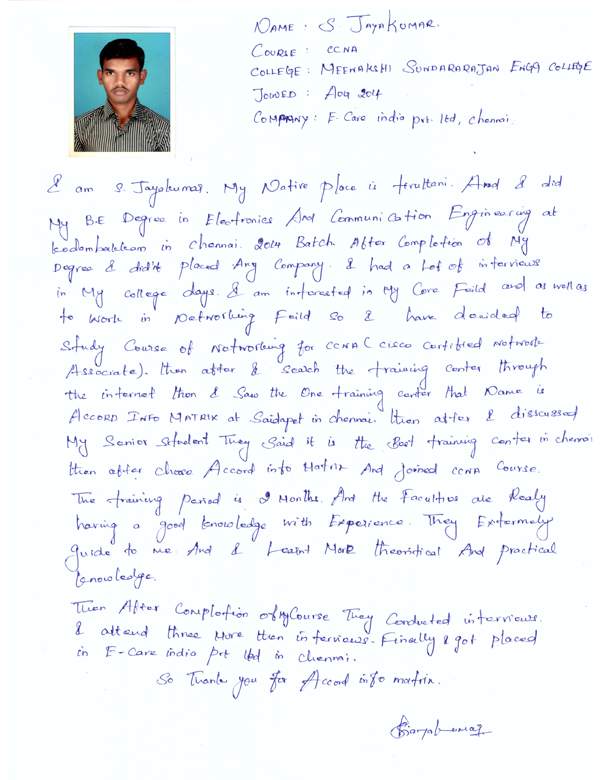 NAME : S JAYAKUMAR.
COURSE : CCNA
COLLEGE : MEENAKSHI SUNDARARAJAN ENGG COLLEGE
JOINED : AUG 2014
COMPANY : E-Care india pvt. ltd, chennai.
I am S. Jayakumar. My Native place is tiruttani. And I did
My B.E Degree in Electronics And Communication Engineering at
kodambakkam in chennai. 2014 Batch After Completion of My
Degree I didn't placed Any Company. I had a Lot of interviews
in My college days. I am interested in My Core Feild and as well as
to work in Networking Feild So I have decided to
Study Course of Networking for CCNA (cisco certified network
Associate). then after I search the training center through
the internet then I Saw the One training center that Name is
ACCORD INFO MATRIX at Saidapet in chennai. then after I disscussed
My Senior Student They Said it is the Best training Center in chennai
then after chose Accord info Matrix And joined CCNA Course.
The training period is 2 Months. And the Faculties are Realy
having a good knowledge with Experience. They Extermely
guide to me And I Learnt More theoritical And practical
knowledge.
Then After Completion of My Course They Conducted interviews.
I attend three More then interviews. Finally I got placed
in E-Care india Pvt ltd in chennai.
So Thank you for Accord info matrix.
S Jayakumar